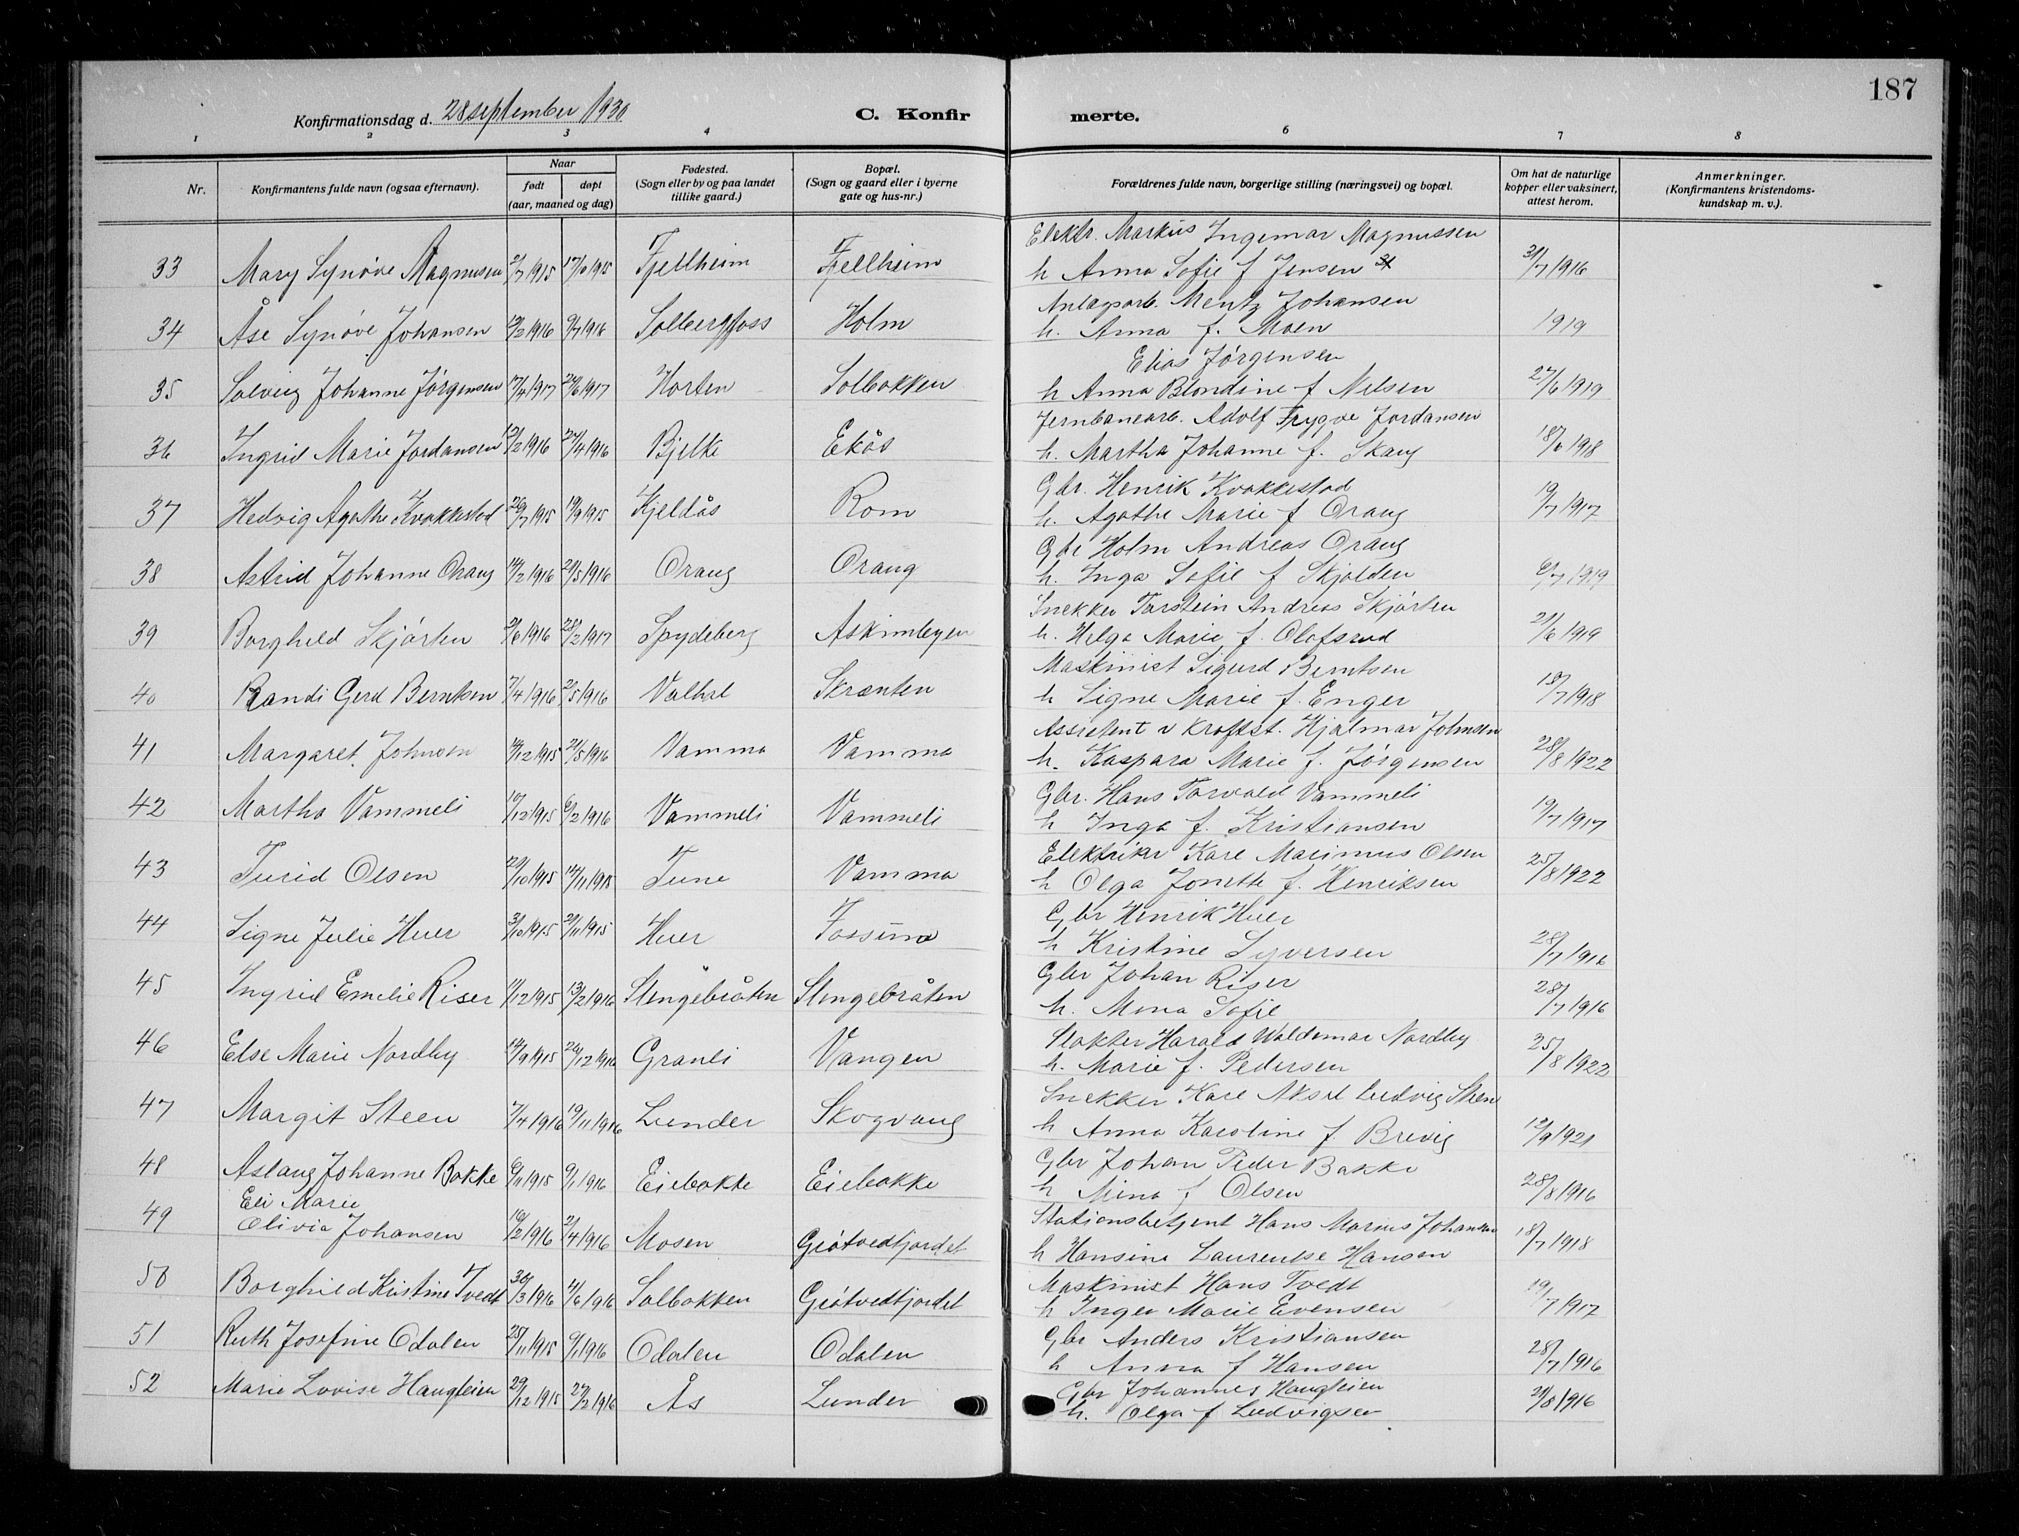 187
Konfirmationsdag d. 28 september 1930
C. Konfirmerte.
1 2 3 4 6 7 8
Nr. Konfirmantens fulde navn (ogsaa efternavn). Naar født døpt (aar, maaned og dag) Fødested. (Sogn eller by og paa landet tillike gaard.) Bopæl. (Sogn og gaard eller i byerne gate og hus-nr.) Forældrenes fulde navn, borgerlige stilling (næringsvei) og bopæl. Om hat de naturlige kopper eller vaksinert, attest herom. Anmerkninger. (Konfirmantens kristendomskundskap m. v.).
Elektr. Markus Ingemar Magnussen
33 Mary Synøve Magnusen 2/7 1915 Fjellheim Fjellheim h Anna Sofie f Jensen 31/7 1916
Anlægsarb. Mentz Johansen
34 Åse Synøve Johansen Solbergfoss Holm h. Anna f. Moen 1919
Elias Jørgensen
35 Solveig Johanne Jørgensen 17/4 1917 24/6 1917 Horten Solbakken h Anna Blondine f Nilsen 27/6 1919
Jernbanearb. Adolf Trygve Jordansen
36 Ingrid Marie Jordansen 24/4 1916 Bjelke Ekås h. Martha Johanne f. Skaug
Gbr. Henrik Kvakkestad
37 Hedvig Agathe Kvakkestad 26/7 1915 19/9 1915 Kjellås Rom h. Agathe Marie f Oraug 19/7 1917
Gbr Holm Andreas Oraug
38 Astrid Johanne Oraug 14/2 1916 21/5 1916 Oraug Oraug h. Inga Sofie f Skjolden 6/7 1919
Snekker Torstein Andreas Skjørten
39 Borghild Skjørten 2/6 1916 25/2 1917 Spydeberg Askimbyen h. Helga Marie f. Olafsrud 21/6 1919
Maskinist Sigurd Berntsen
40 Randi Gerd Berntsen 7/4 1916 Skrenten h Signe Marie f. Enger 18/7 1918
Assistent v Kraftst. Hjalmar Johnsen
41 Margaret Johnsen 21/5 1916 Vamma Vamma h. Kaspara Marie f. Jørgensen 28/8 1922
Gbr. Hans Torvald Vammeli
42 Martha Vammeli 10/12 1915 6/2 1916 Vammeli Vammeli h Inga f. Kristiansen 19/7 1917
Elektriker Kare Marinus Olsen
43 Turid Olsen 29/10 1915 14/11 1915 Tune Vamma h Olga Jonette f. Henriksen 25/8 1922
Gbr Henrik Huer
44 Signe Julie Huer 3/10 1915 21/11 1915 Huer Fossum h Kristine Syversen 28/7 1916
Gbr Johan Riser
45 Ingrid Emelie Riser 11/12 1915 13/2 1916 Stengebråten Stengebråten h. Mina Sofie 28/7 1916
Slakter Harald Waldemar Nordby
46 Else Marie Nordby 14/9 1915 26/12 1916 Granli Vangen h. Marie f. Pedersen 25/8 1922
Snekker Kare Aksel Ludvig Steen
47 Margit Steen 7/4 1916 19/11 1916 Lunder Skogvang h Anna Karoline f Brevig 12/9 1921
Gbr Johan Peder Bakke
48 Aslaug Johanne Bakke 6/11 1915 9/1 1916 Eiebakke Eiebakke h Mina f Olsen 28/8 1916
Eli Marie
Stationsbetjent Hans Marius Johansen
49 Olivia Johansen 16/2 1916 2/4 1916 Mosen Grøtvedtjordet h Hansine Laurentse Hansen 18/7 1918
Maskinist Hans Tvedt
50 Borghild Kristine Tvedt 30/3 1916 11/6 1916 Solbakken Grøtvedtjordet h Inger Marie Evensen 19/7 1917
Gbr Anders Kristiansen
51 Ruth Josefine Odalen 25/11 1915 9/1 1916 Odalen Odalen h Anna f Hansen 28/7 1916
Gbr Johannes Haugleien
52 Marie Lovise Haugleien 29/12 1915 27/2 1916 Ås Lunder h. Olga f Ludvigsen 21/8 1916